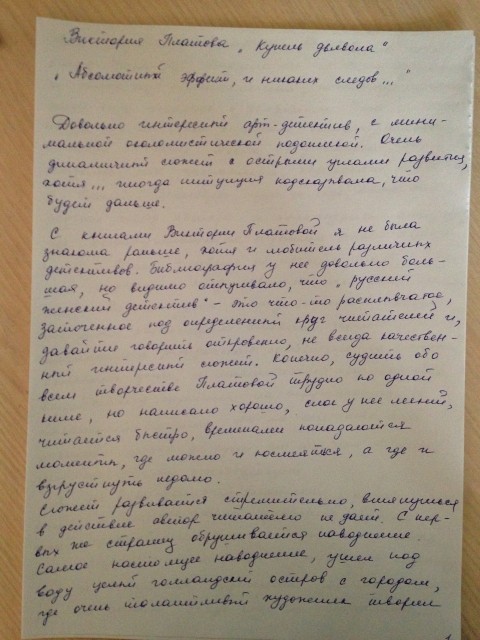 Виктория Платова „Купель дьявола"
„Абсолютный эффект, и никаких следов..."
Довольно интересный арт-детектив, с мини-
мальной околомистической подоплекой. Очень
динамичный сюжет с острыми углами развития,
хотя... иногда интуиция подсказывала, что
будет дальше.
С книгами Виктории Платовой я не была
знакома раньше, хотя и любитель различных
детективов. Библиография у нее довольно боль-
шая, но видимо отпугивало, что „русский
женский детектив" - это что-то расплывчатое,
заточенное под определенный круг читателей и,
давайте говорить откровенно, не всегда качествен-
ный интересный сюжет. Конечно, судить обо
всем творчестве Платовой трудно по одной
книге, но написано хорошо, слог у нее легкий,
читается быстро, временами попадаются
моменты, где можно и посмеяться, а где и
взгрустнуть недолго.
Сюжет развивается стремительно, вклиниться
в действие автор читателю не дает. С пер-
вых же страниц обрушивается наводнение.
Самое настоящее наводнение, ушел под
воду целый голландский остров с городом,
где очень талантливый художник творил